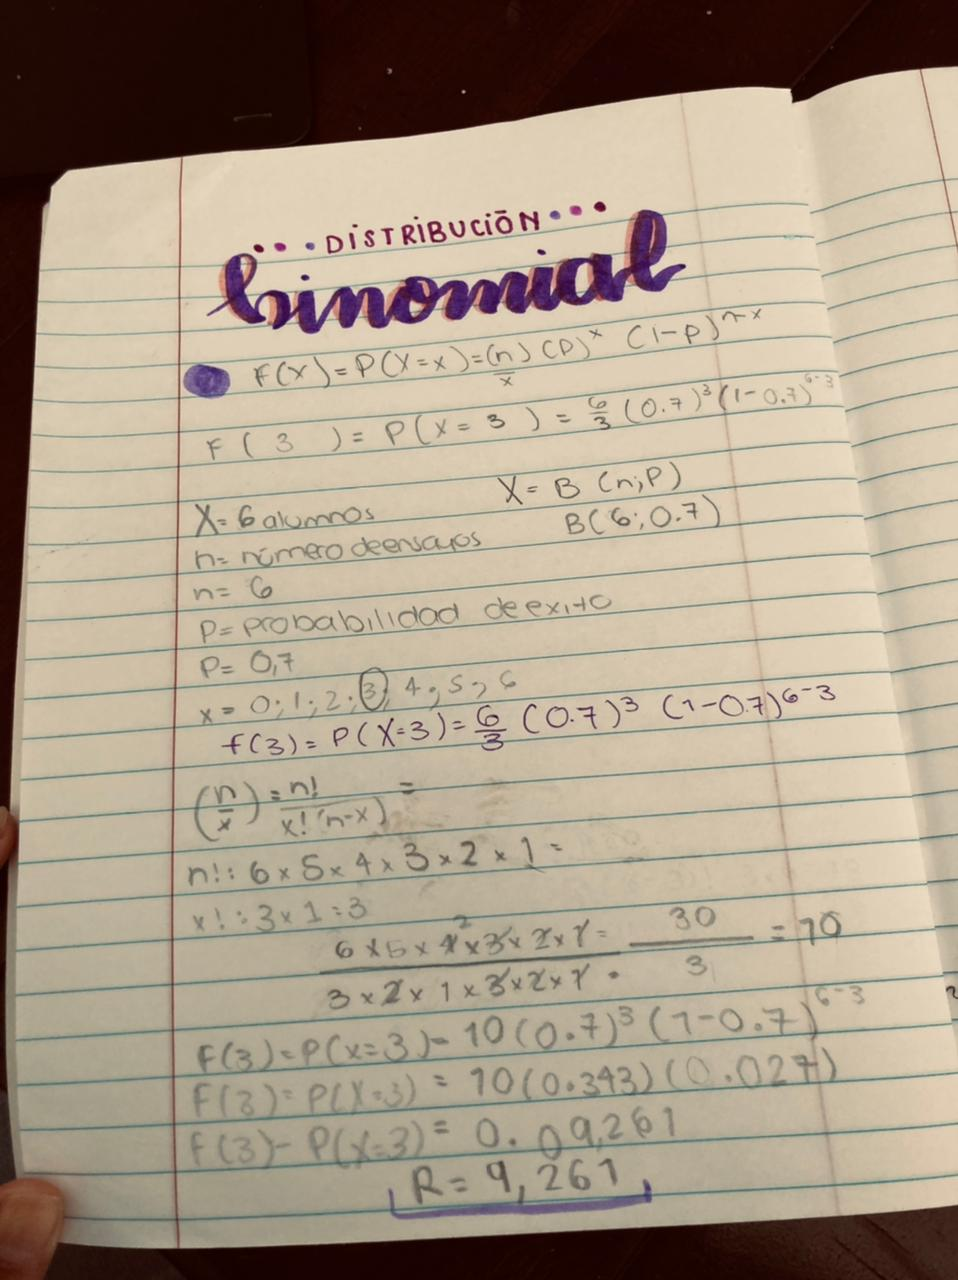 DISTRIBUCIÓN
binomial
F(x)=P(X=x)=(n/x)(p)^x (1-p)^n-x
F( 3 )= P(X= 3 ) = 6/3 (0.7)^3(1-0.7)^6-3
X= 6 alumnos
X= B (n;P)
n= número de ensayos
B(6; 0.7)
n= 6
P= probabilidad de exito
P= 0,7
x= 0; 1; 2; 3; 4; 5; 6
f(3)= P(X=3)= 6/3 (0.7)^3 (1-0.7)^6-3
(n/x) = n!/x!(n-x) =
n!: 6 x 5 x 4 x 3 x 2 x 1 =
x!: 3 x 1 = 3
6 x 5 x 4^2 x 3 x 2 x 1 / 3 x 2 x 1 x 3 x 2 x 1 = 30 / 3 = 10
F(3)=P(x=3)= 10(0.7)^3 (1-0.7)^6-3
F(3)= P(X=3) = 10(0.343)(0.027)
F(3)- P(X=3)= 0.09,261
R= 9,261